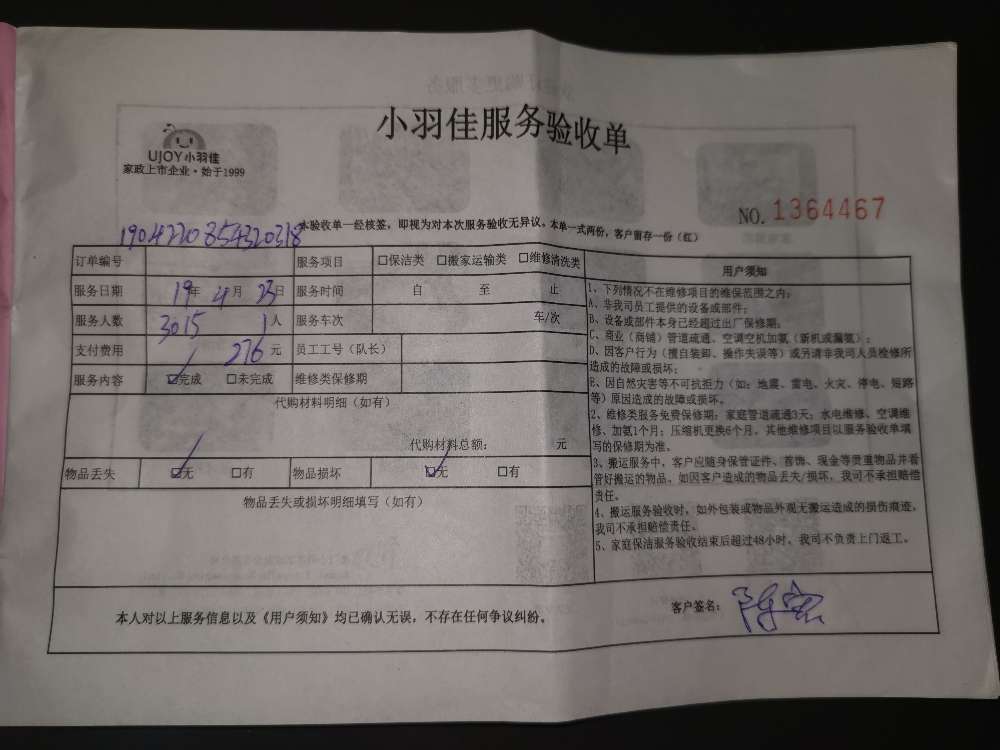 小羽佳服务验收单
UJOY小羽佳
家政上市企业·始于1999
NO. 1364467
本验收单一经核签，即视为对本次服务验收无异议。本单一式两份，客户留存一份（红）
订单编号 服务项目 □保洁类 □搬家运输类 □维修清洗类
服务日期 19年 4月 23日 服务时间 自 至 止
服务人数 3015 1人 服务车次 车/次
支付费用 276元 员工工号（队长）
服务内容 ☑完成 □未完成 维修类保修期
代购材料明细（如有）
代购材料总额： 元
物品丢失 ☑无 □有 物品损坏 ☑无 □有
物品丢失或损坏明细填写（如有）
用户须知
1、下列情况不在维修项目的维保范围之内：
A、非我司员工提供的设备或部件；
B、设备或部件本身已经超过出厂保修期；
C、商业（商铺）管道疏通、空调空机加氨（新机或漏氨）；
D、因客户行为（擅自装卸、操作失误等）或另请非我司人员检修所
造成的故障或损坏；
E、因自然灾害等不可抗拒力（如：地震、雷电、火灾、停电、短路
等）原因造成的故障或损坏。
2、维修类服务免费保修期：家庭管道疏通3天；水电维修、空调维
修、加氨1个月；压缩机更换6个月。其他维修项目以服务验收单填
写的保修期为准。
3、搬运服务中，客户应随身保管证件、首饰、现金等贵重物品并看
管好搬运的物品。如因客户造成的物品丢失/损坏，我司不承担赔偿
责任。
4、搬运服务验收时，如外包装或物品外观无搬运造成的损伤痕迹，
我司不承担赔偿责任。
5、家庭保洁服务验收结束后超过48小时，我司不负责上门返工。
本人对以上服务信息以及《用户须知》均已确认无误，不存在任何争议纠纷。
客户签名：